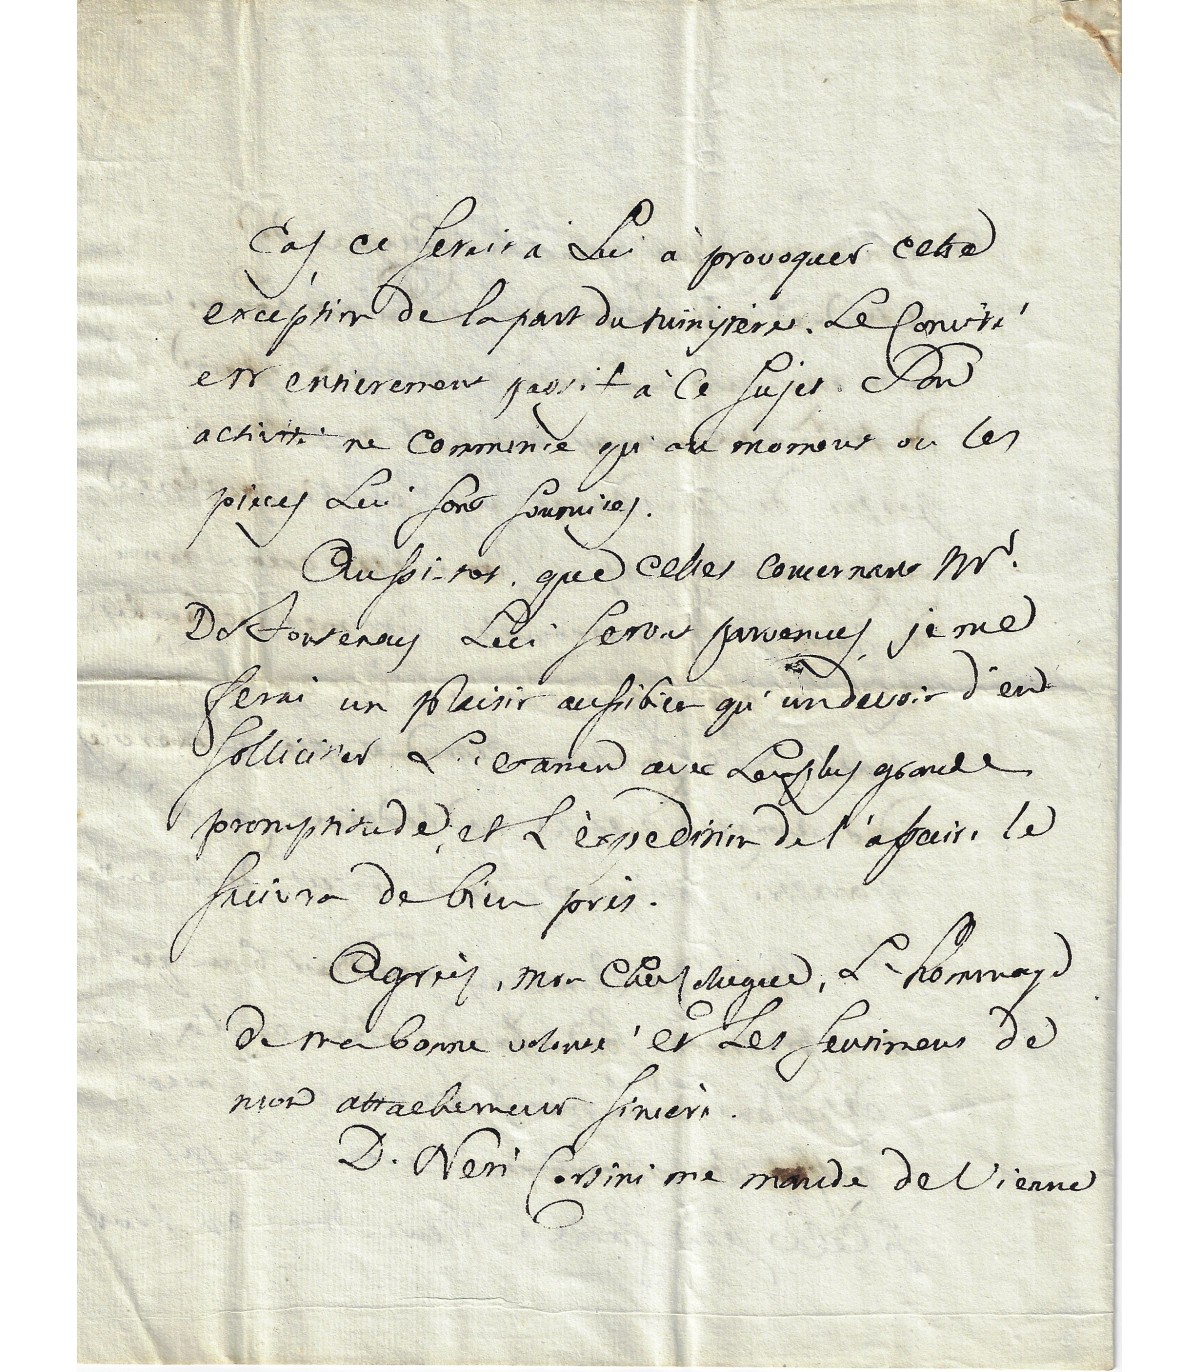 Cas ce serait à Lui à provoquer cette
exception de la part du ministère. Le Comité
est entierement passif à ce sujet. Son
activité ne commence qu'au moment ou les
pièces Lui sont fournies.
Aussi-tot que celles concernant Mr.
De Fontenay Lui seront parvenues, je me
ferai un plaisir aussi bien qu'un devoir d'en
solliciter L'examen avec La plus grande
promptitude, et L'éxpedition de l'affaire le
suivra de bien près.
Agréés, mon Cher Collegue, L'hommage
de ma bonne volonté et Les sentimens de
mon attachement sincère.
D. Neri Corsini me mande de Vienne